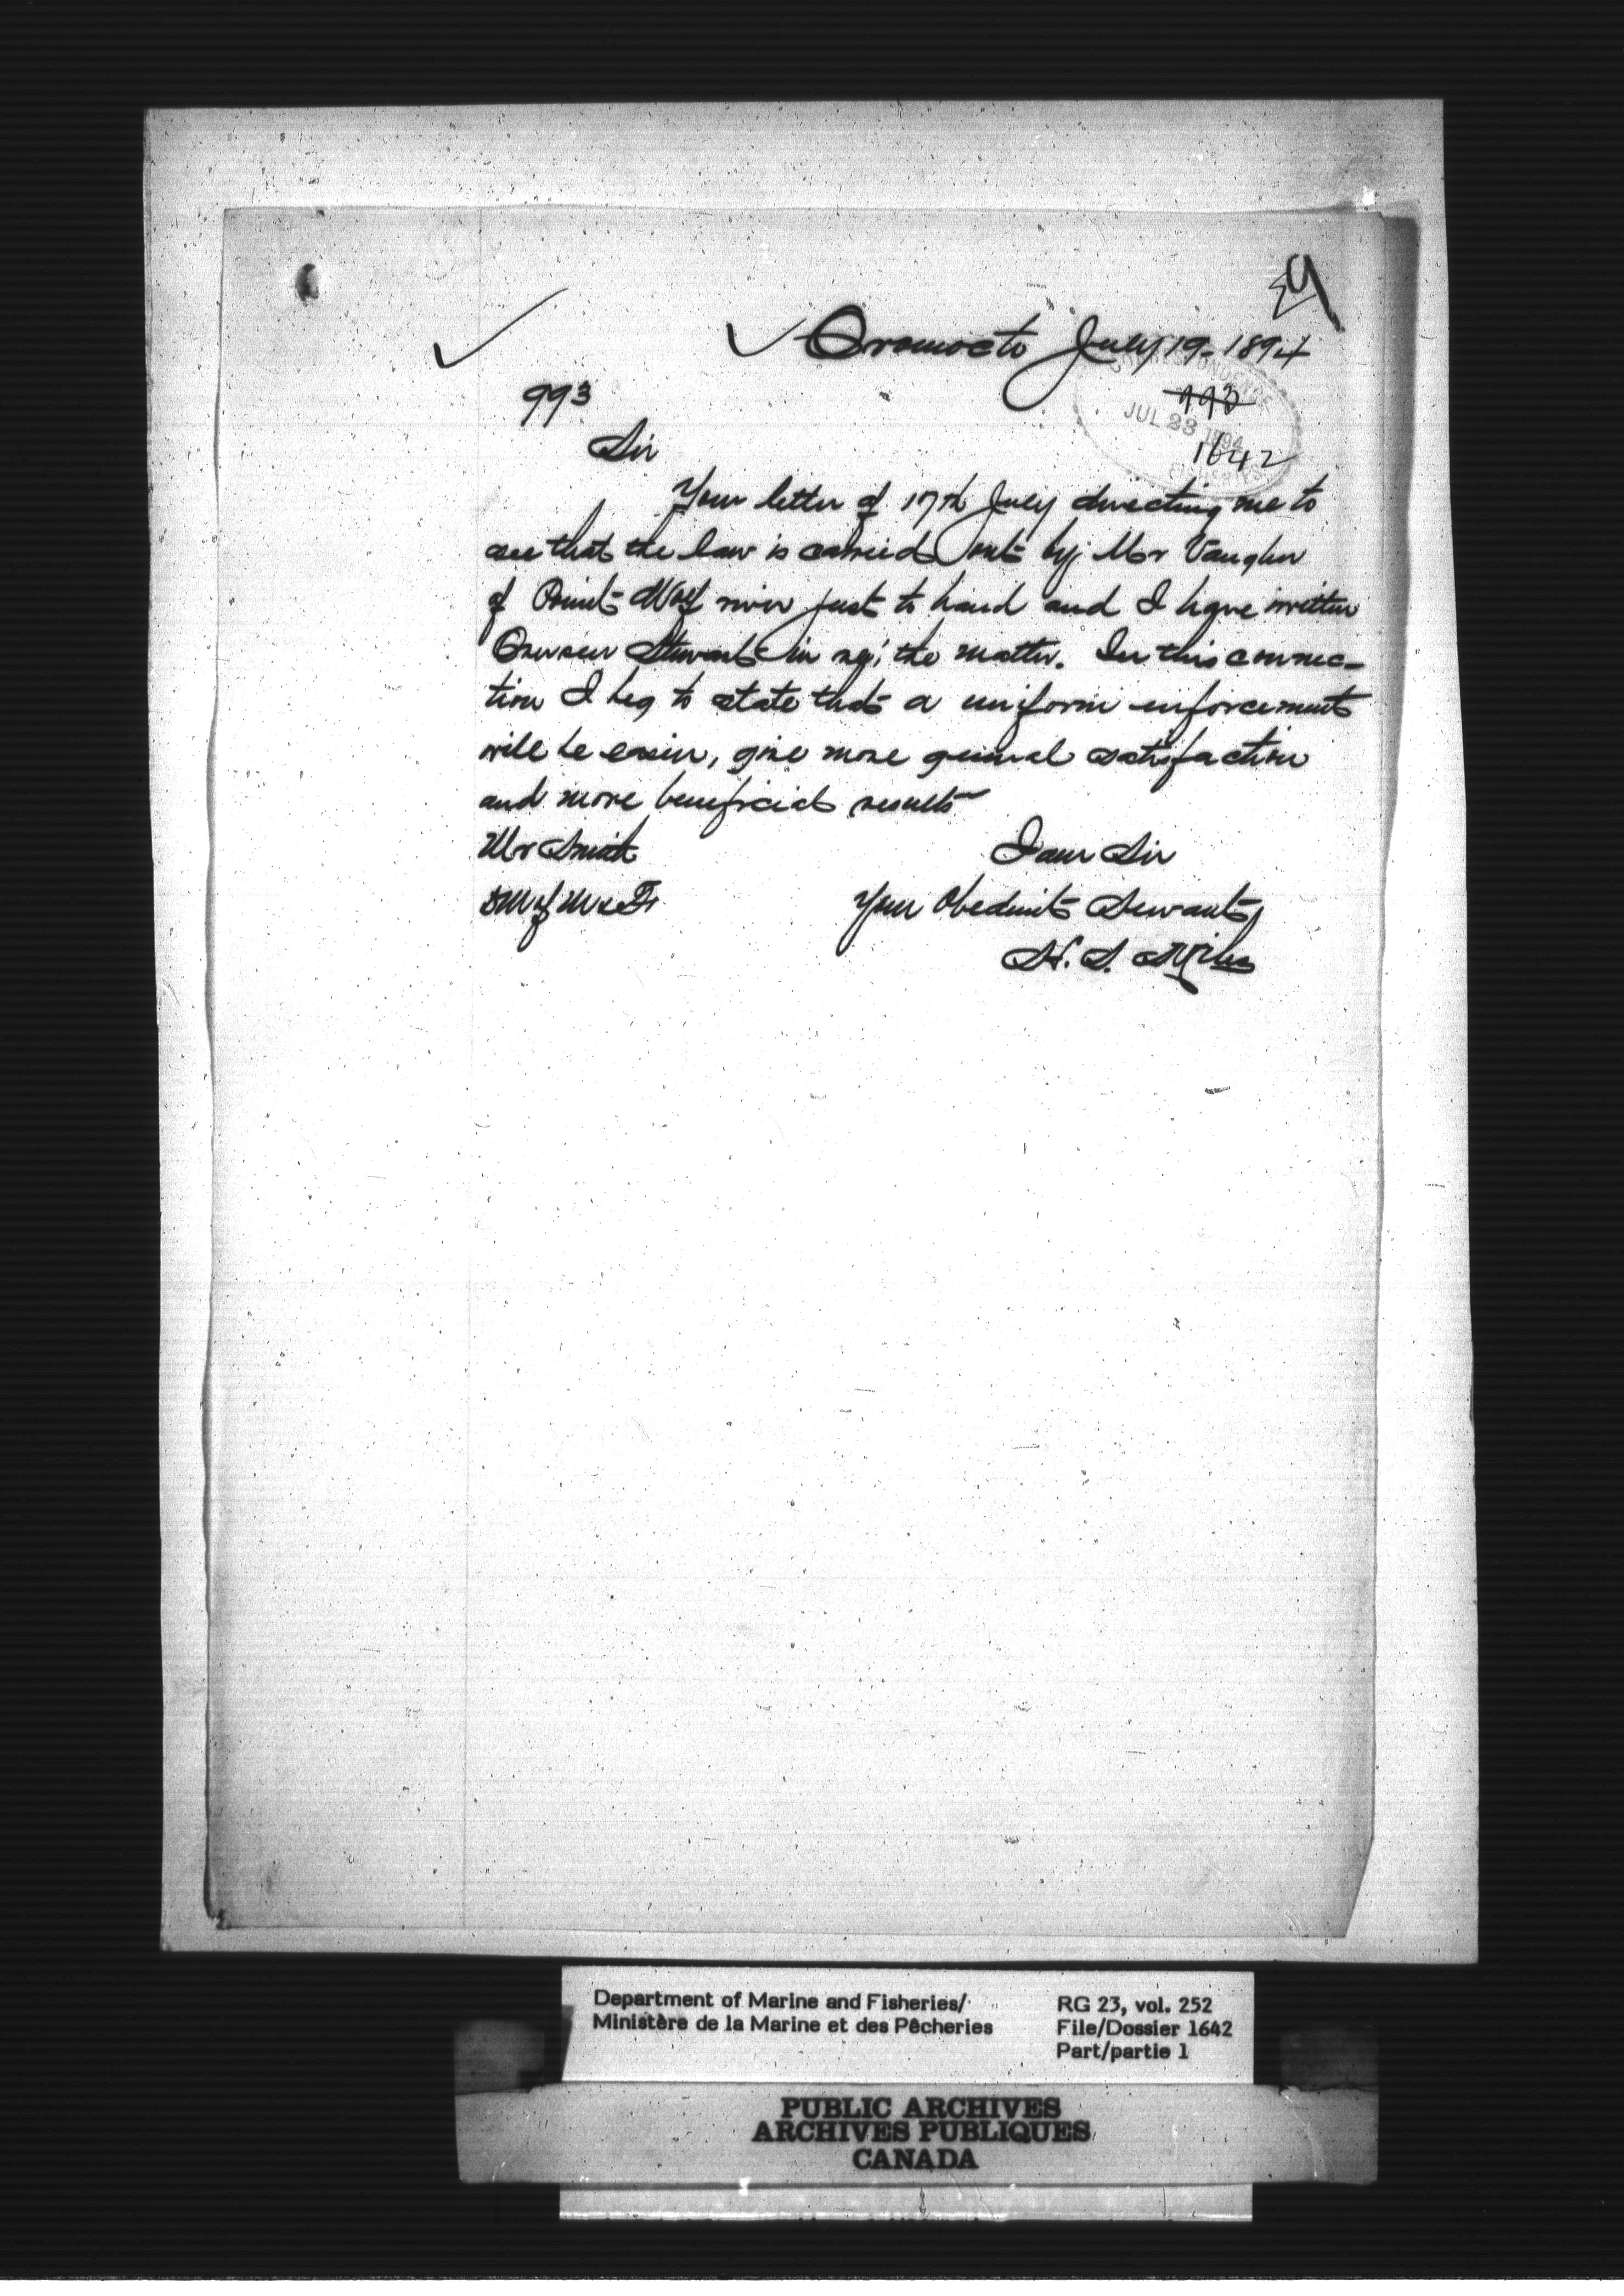 Oromocto July 19- 1894
993
993
CORRESPONDENCE
JUL 23 1894
FISHERIES
1642
Sir
Your letter of 17th July directing me to
see that the law is carried out by Mr Vaughn
of Point Wolf river just to hand and I have written
Overseer Stewart in re; the matter. In this connec-
tion I beg to state that a uniform enforcement
will be easier, give more general satisfaction
and more beneficial results
Mr Smith
I am Sir
DM of M & F
Your Obedient Servant,
H. S. Miles
Department of Marine and Fisheries/
Ministère de la Marine et des Pêcheries
RG 23, vol. 252
File/Dossier 1642
Part/partie 1
PUBLIC ARCHIVES
ARCHIVES PUBLIQUES
CANADA